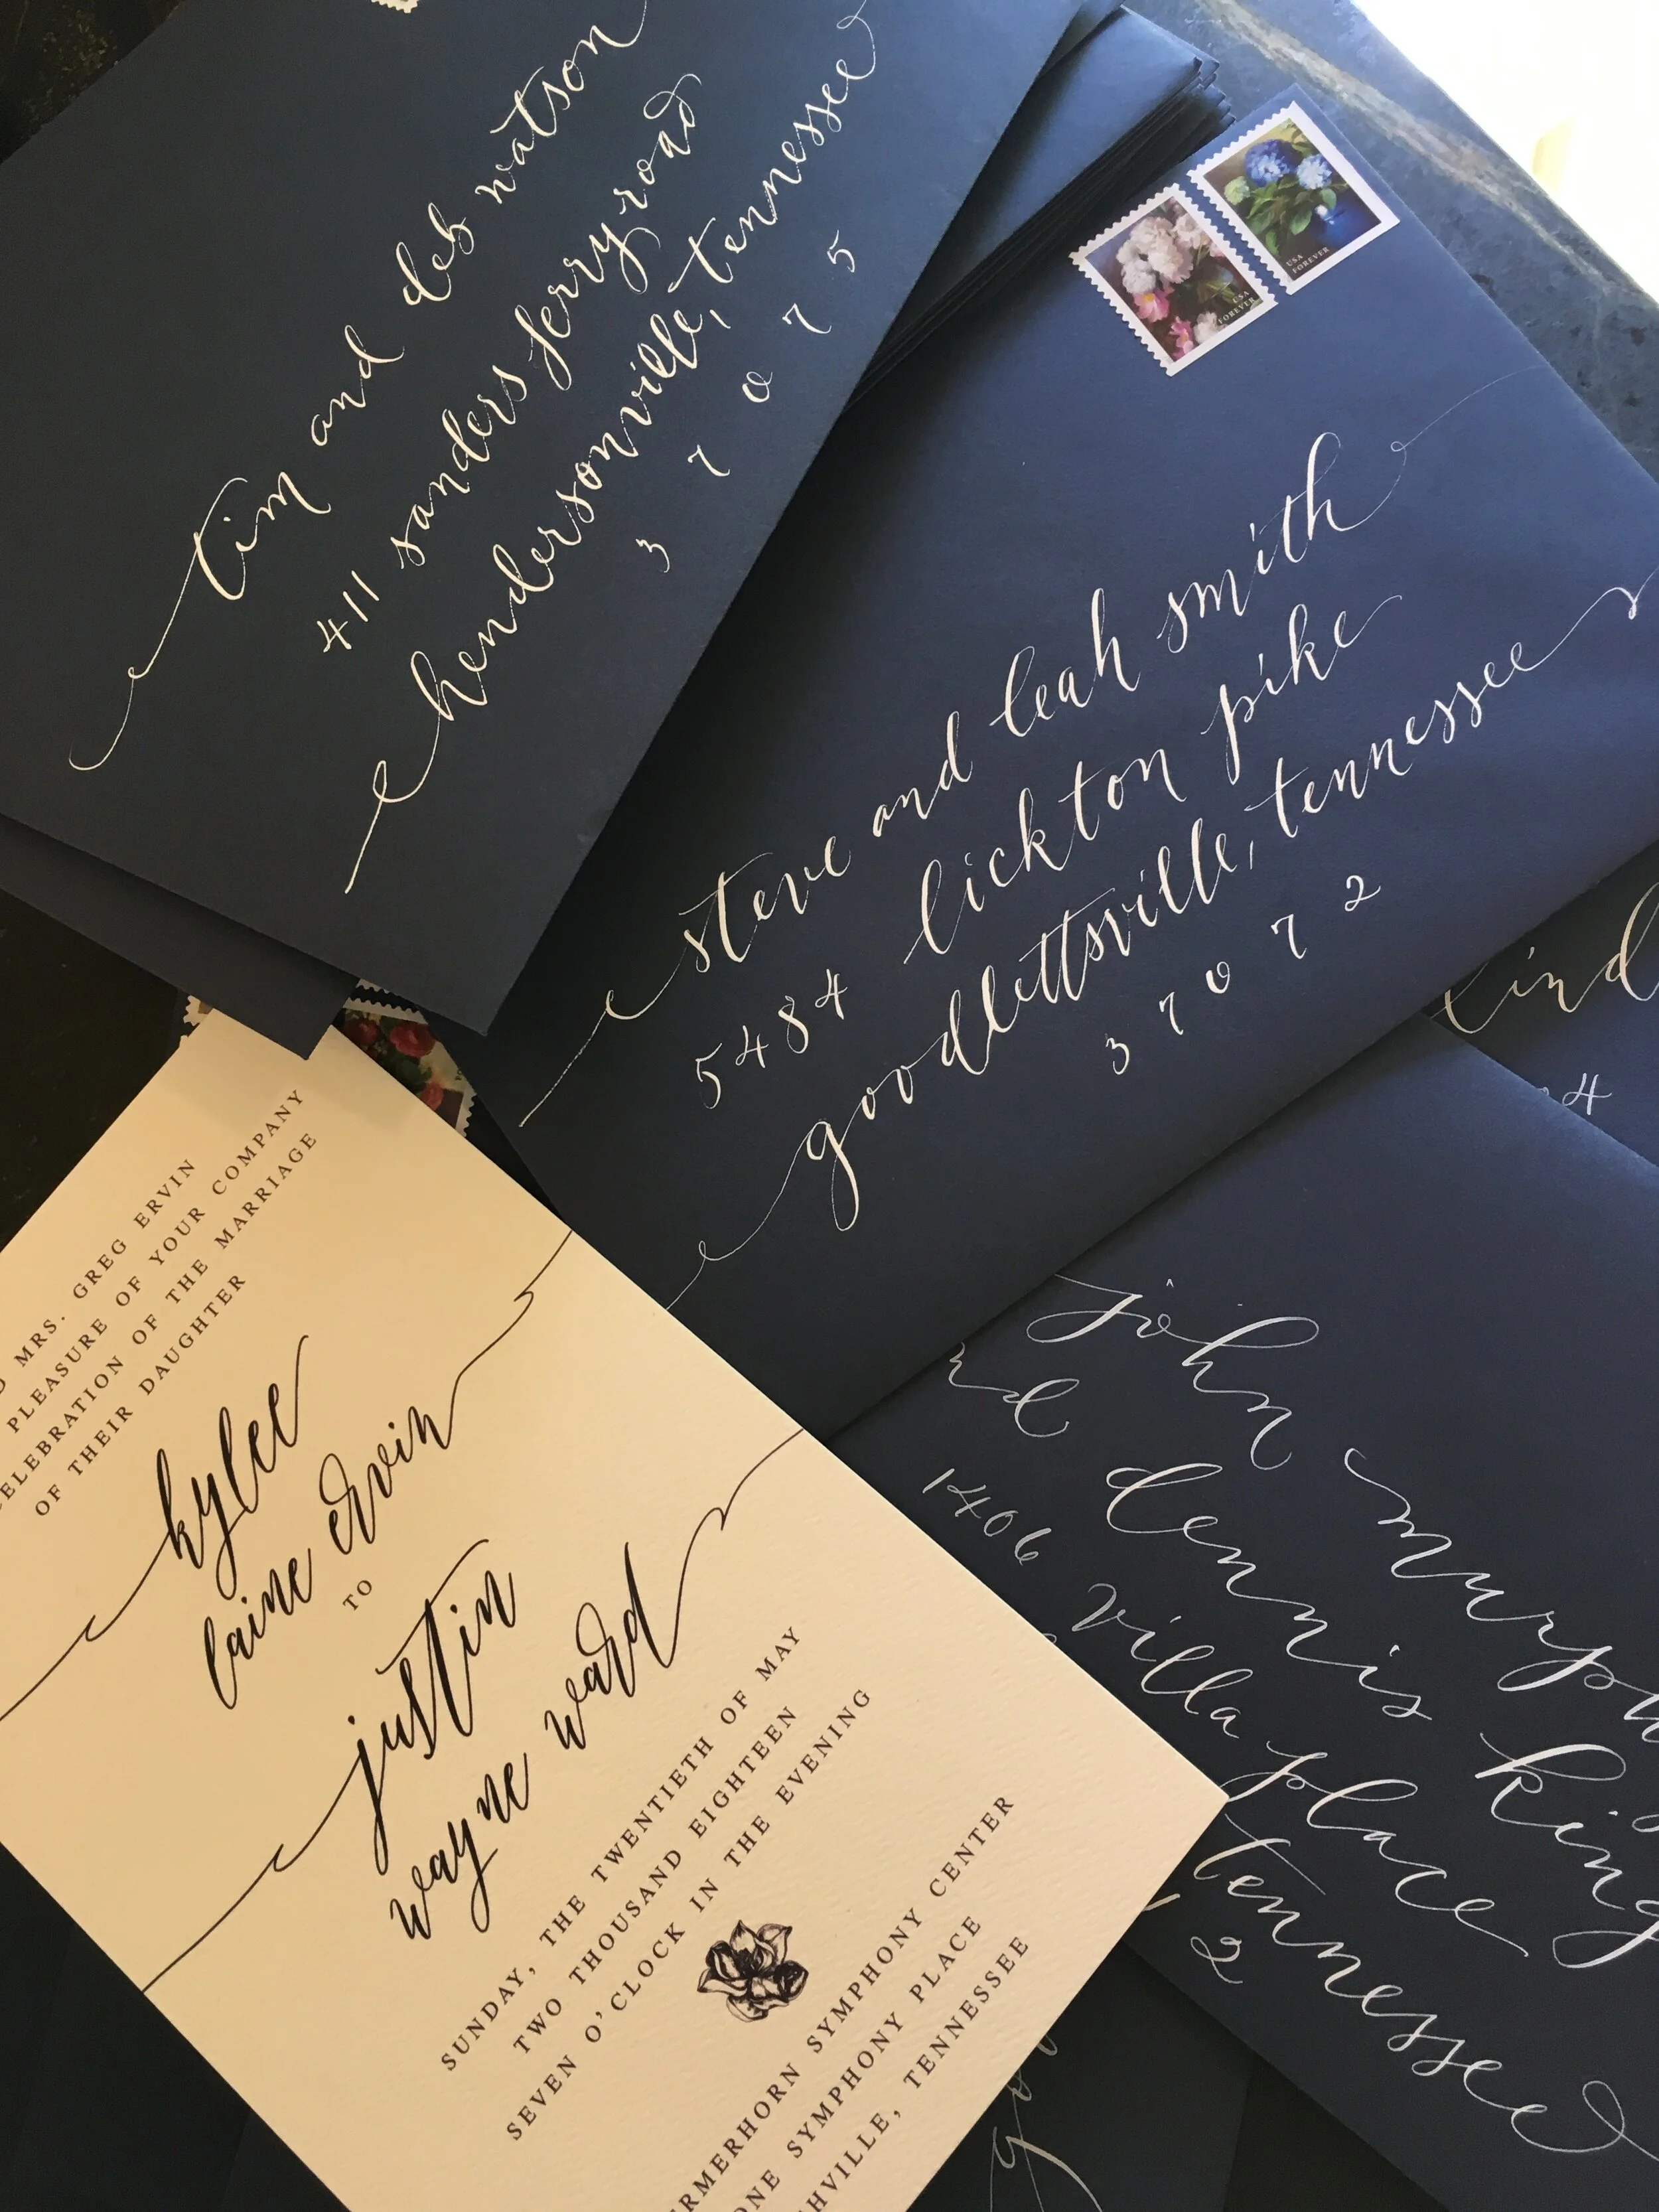 tim and deb watson
411 sanders ferry road
hendersonville, tennessee
3 7 0 7 5
USA
FOREVER
USA
FOREVER
steve and leah smith
5484 lickton pike
goodlettsville, tennessee
3 7 0 7 2
4
john
dennis king
1406 villa place
tennessee
2
MRS. GREG ERVIN
PLEASURE OF YOUR COMPANY
CELEBRATION OF THE MARRIAGE
OF THEIR DAUGHTER
kylee
laine ervin
TO
justin
wayne ward
SUNDAY, THE TWENTIETH OF MAY
TWO THOUSAND EIGHTEEN
SEVEN O'CLOCK IN THE EVENING
SYMPHONY CENTER
ONE SYMPHONY PLACE
TENNESSEE